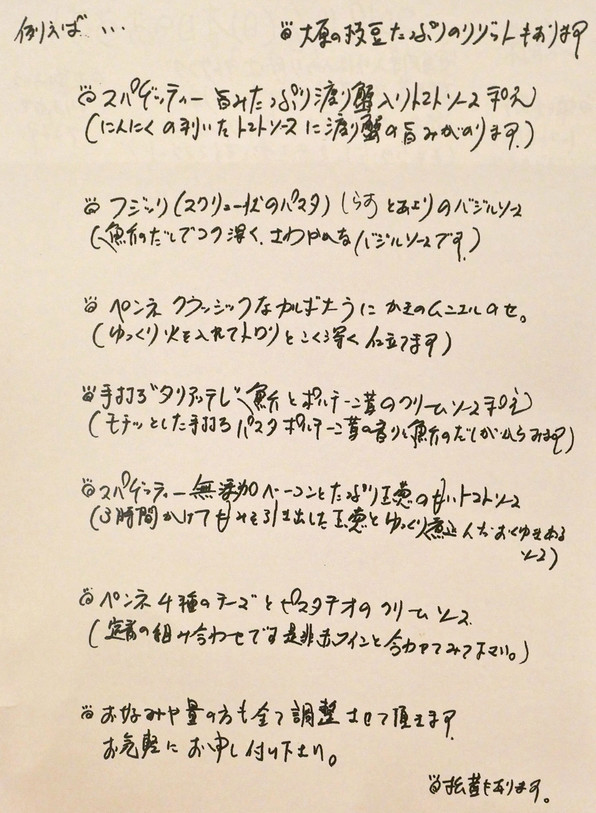 例えば…
大原の枝豆たっぷりのリゾットもあります
スパゲッティー 旨みたっぷり渡り蟹入りトマトソース
(にんにくの利いたトマトソースに渡り蟹の旨みがのります。)
フジッリ(スクリュー状のパスタ)しらすとあおりのバジルソース
(魚介のだしでコク深く、さわやかなバジルソースです。)
ペンネ クラッシックなカルボナーラに かきのムニエルのせ。
(ゆっくり火を入れてトロリとこく深く仕立てます)
手打ちタリアッテレ 魚介とポルチーニ茸のクリームソース
(モチッとした手打ちパスタ ポルチーニ茸の香りと魚介のだしがからみます)
スパゲッティー 無添加ベーコンとたっぷり玉葱の甘いトマトソース
(3時間かけて甘みを引き出した玉葱とゆっくり煮込んだおくゆきある
ソース)
ペンネ 4種のチーズとピスタチオのクリームソース
(定番の組み合わせです 是非赤ワインと合わせてみて下さい。)
お好みや量の方も全て調整させて頂きます。
お気軽にお申し付け下さい。
松茸もあります。